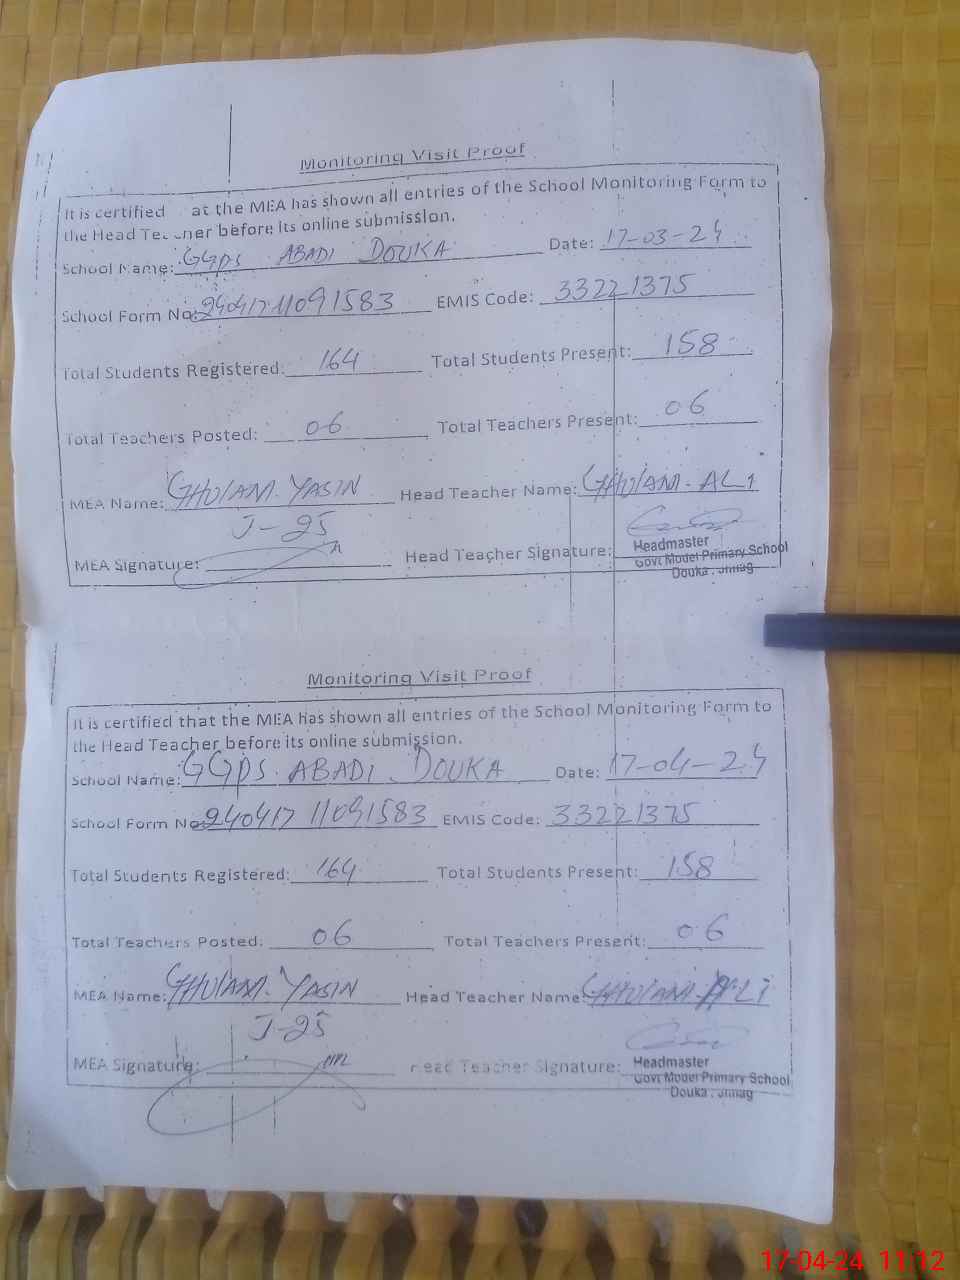 Monitoring Visit Proof
It is certified at the MEA has shown all entries of the School Monitoring Form to
the Head Teacher before its online submission.
School Name: GGPS ABADI DOUKA Date: 17-03-24
School Form No: 240417 11091583 EMIS Code: 33221375
Total Students Registered: 164 Total Students Present: 158
Total Teachers Posted: 06 Total Teachers Present: 06
MEA Name: GHULAM YASIN Head Teacher Name: GHULAM ALI
J-25
MEA Signature: Head Teacher Signature:
Headmaster
Govt Model Primary School
Douka
Monitoring Visit Proof
It is certified that the MEA has shown all entries of the School Monitoring Form to
the Head Teacher before its online submission.
School Name: GGPS ABADI DOUKA Date: 17-04-24
School Form No 240417 11091583 EMIS Code: 33221375
Total Students Registered: 164 Total Students Present: 158
Total Teachers Posted: 06 Total Teachers Present: 06
MEA Name: GHULAM YASIN Head Teacher Name: GHULAM ALI
J-25
MEA Signature: Head Teacher Signature:
Headmaster
Govt Model Primary School
Douka
17-04-24 11:12